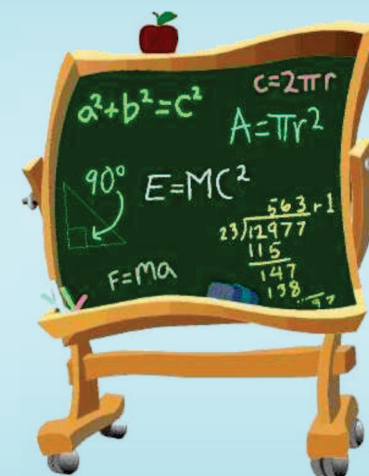 a²+b²=c²
C=2πr
A=πr²
90°
E=MC²
F=ma
563r1
23)12977
115
147
138
97